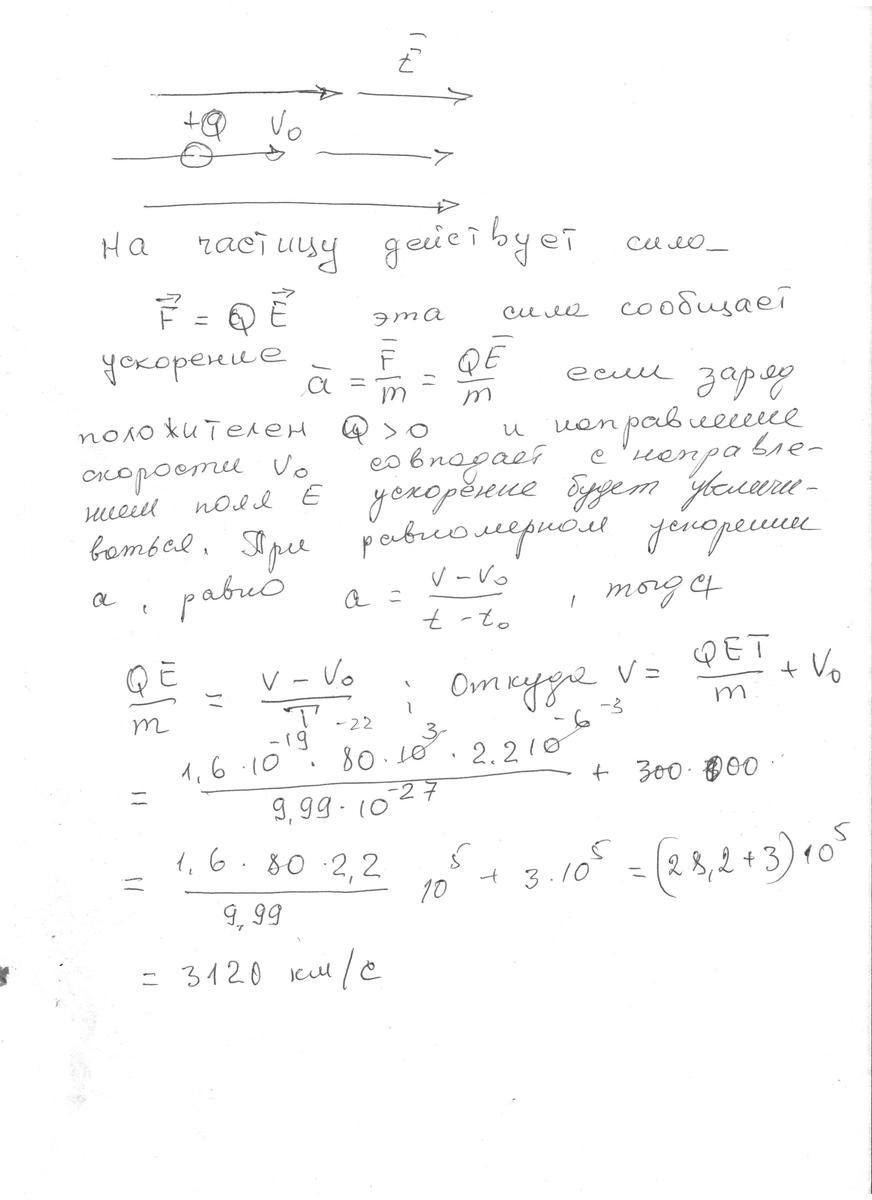 E̅
+Q V₀
На частицу действует сила
F⃗ = Q E⃗ эта сила сообщает
ускорение a̅ = F̅/m = QE̅/m если заряд
положителен Q > 0 и направление
скорости V₀ совпадает с направле-
нием поля E ускорение будет увеличи-
ваться. При равномерном ускорении
a, равно a = (V - V₀)/(t - t₀), тогда
QE̅/m = (V - V₀)/T ; Откуда V = QET/m + V₀
-22 -3
= (1,6 · 10⁻¹⁹ · 80 · 10³ · 2.2 10⁻⁶)/(9,99 · 10⁻²⁷) + 300 · 000
= (1,6 · 80 · 2,2)/(9,99) 10⁵ + 3 · 10⁵ = (28,2 + 3) 10⁵
= 3120 км/с